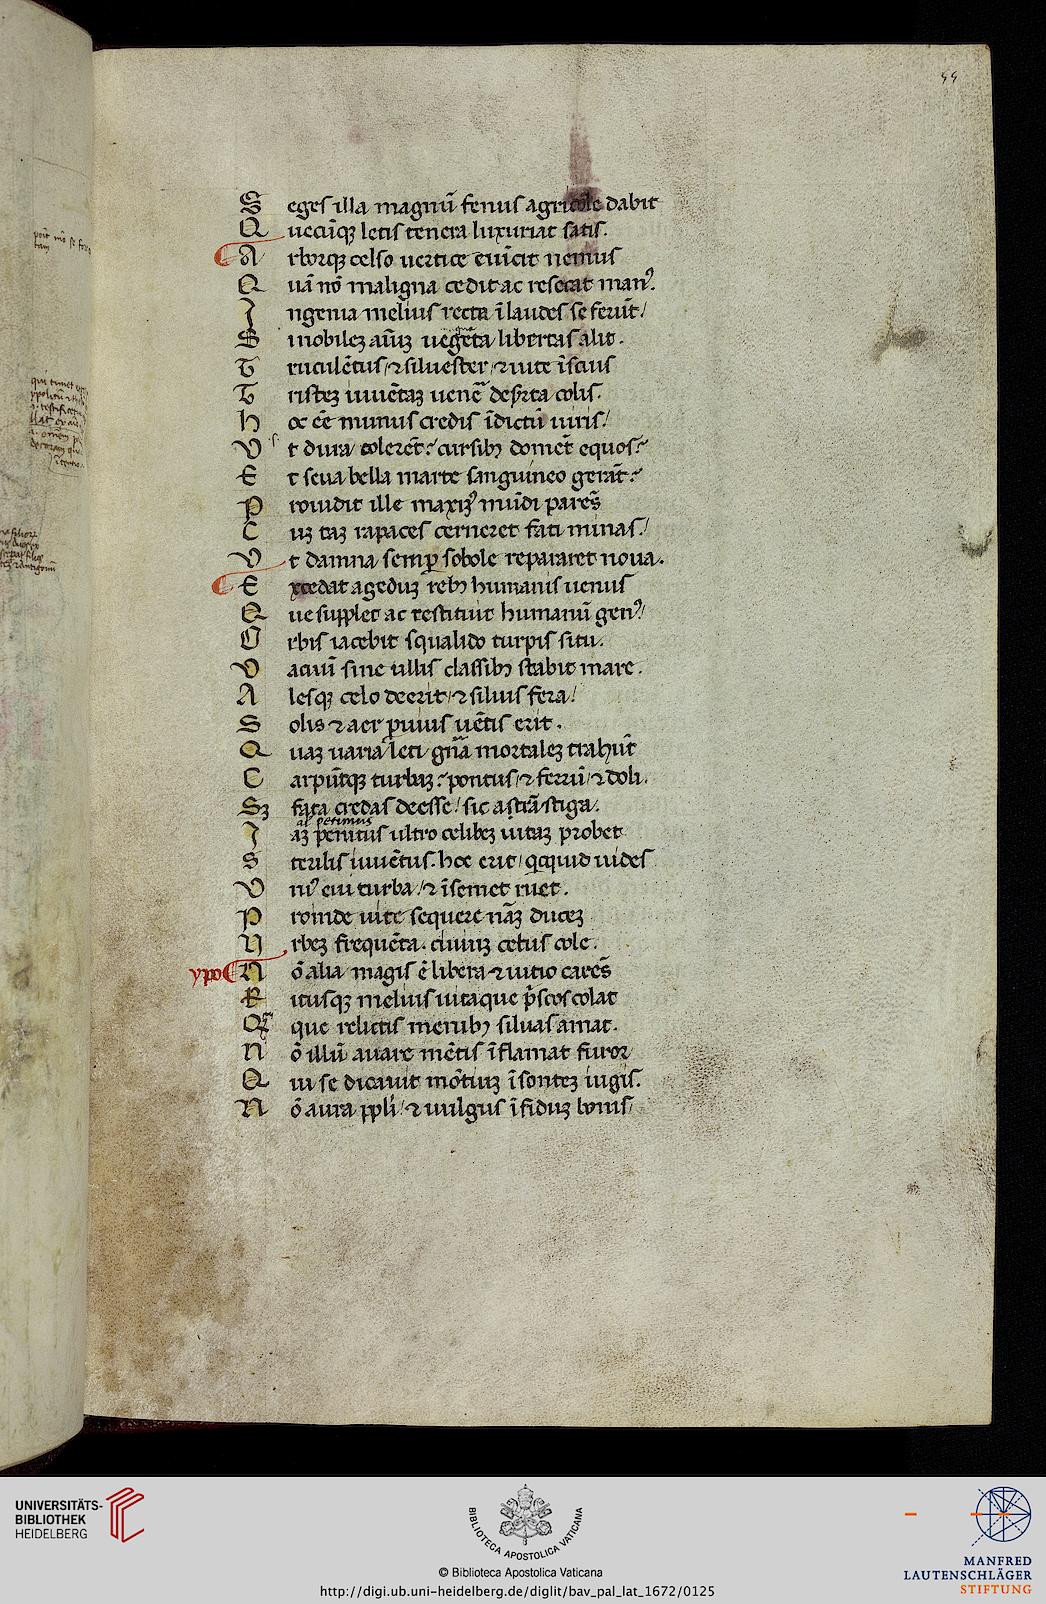 55
S eges illa magnū fenus agricole dabit
Q uecūq; letis tenera luxuriat satis.
A rborq; celso uertice euīcit nemus
Q uā nō maligna cedit ac resecat manꝰ.
I ngenia melius recta ī laudes se ferūt/
S i nobilez aīuz uegeta libertas alit.
T ruculētus/ ⁊ siluester/ ⁊ uite īscius
T ristez iuuētaz uenē desꝛta colis.
H oc eē munus credis īdictū uiris/
V t dura tolerēt: cursibꝫ domēt equos:
E t seua bella marte sanguineo gerāt:
P rouidit ille maxīꝰ mūdi parēs
C uz taz rapaces cerneret fati minas/
V t damna semꝑ sobole repararet noua.
E xcedat ageduz rebꝫ humanis uenus
Q ue supplet ac restituit humanū genꝰ/
O rbis iacebit squalido turpis situ.
V acuū sine ullis classibꝫ stabit mare.
A lesq; celo deerit/ ⁊ siluis fera/
S olis ⁊ aer ꝑuius uētis erit.
Q uaz uaria leti gn̄a mortalez trahūt
C arpūtq; turbaz: pontus/ ⁊ ferrū/ ⁊ doli.
Sꝫ fata credas deesse/ sic astrā stiga.
al' petimus
I az penitus ultro celibez uitaz probet
S terilis iuuētus. hoc erit/ qcquid uides
V niꝰ eui turba/ ⁊ īsemet ruet.
P roinde uite sequere nāz ducez
U rbez frequēta. ciuiuz cetus cole.
ypo N ō alia magis ē libera ⁊ uitio carēs
R itusq; melius uitaque p̄scos colat
Q̄ que relictis menibꝫ siluas amat.
N ō illū auare mētis īflamat furor
Q ui se dicauit mōtiuz īsontez iugis.
N ō aura ppli/ ⁊ uulgus īfiduz bonis/
UNIVERSITÄTS-
BIBLIOTHEK
HEIDELBERG
BIBLIOTECA APOSTOLICA VATICANA
© Biblioteca Apostolica Vaticana
http://digi.ub.uni-heidelberg.de/diglit/bav_pal_lat_1672/0125
MANFRED
LAUTENSCHLÄGER
STIFTUNG